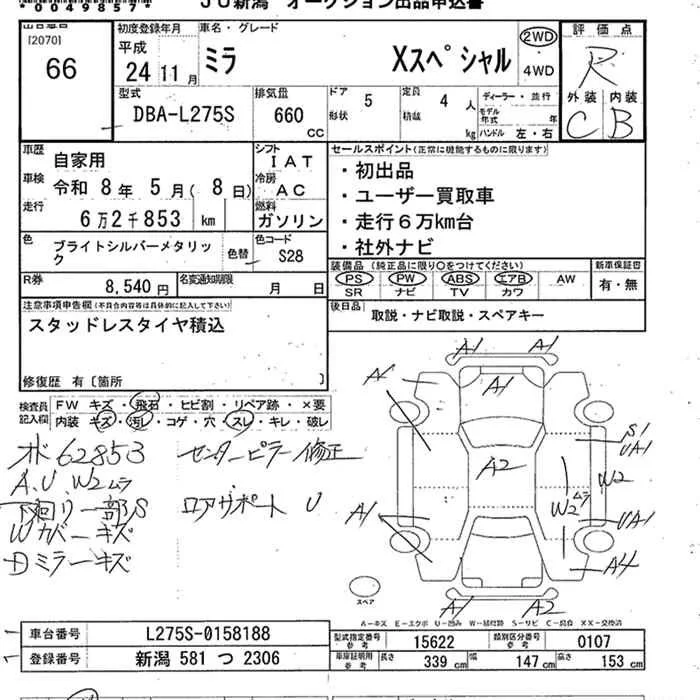 *0049857*
JU新潟 オークション出品申込書
[2070]
66
初度登録年月
平成
24年11月
車名・グレード
ミラ Xスペシャル
2WD
・
4WD
評価点
R
外装 内装
C B
型式
DBA-L275S
排気量
660
CC
ドア 5
形状
定員 4 人
積載 kg
ディーラー・並行
モデル年式 年
ハンドル 左・右
車歴
自家用
シフト
IAT
車検 令和 8年 5月( 8日)
冷房
AC
走行
6万2千853 km
燃料
ガソリン
色
ブライトシルバーメタリック
色替
色コード
S28
R券
8,540円
名変通知期限
月 日
セールスポイント(正常に機能するものに限ります)
・初出品
・ユーザー買取車
・走行6万km台
・社外ナビ
装備品(純正品に限り○をつけてください)
PS PW ABS エアB AW
SR ナビ TV カワ
新車保証書
有・無
後日品
取説・ナビ取説・スペアキー
注意事項申告欄(不具合内容等は具体的に記入して下さい)
スタッドレスタイヤ積込
修復歴 有〔箇所 〕
検査員記入欄
FW キズ・飛石・ヒビ割・リペア跡・×要
内装 キズ・汚レ・コゲ・穴・スレ・キレ・破レ
オ 62853
A,U,W2ムラ
下回り一部S
Wカバーキズ
Dミラーキズ
センターピラー修正
ロアサポート U
A1 A1
A1
A1
A2
S1
UA1
W2
W2ムラ
A1
UA1
A4
A1 A2
スペア
A－キズ E－エクボ U－凹み W－補修跡 S－サビ C－腐食 XX－交換済
車台番号
L275S-0158188
登録番号
新潟 581 つ 2306
型式指定番号
参考
15622
類別区分番号
参考
0107
車庫証明用
参考
長さ 339 cm
幅 147 cm
高さ 153 cm